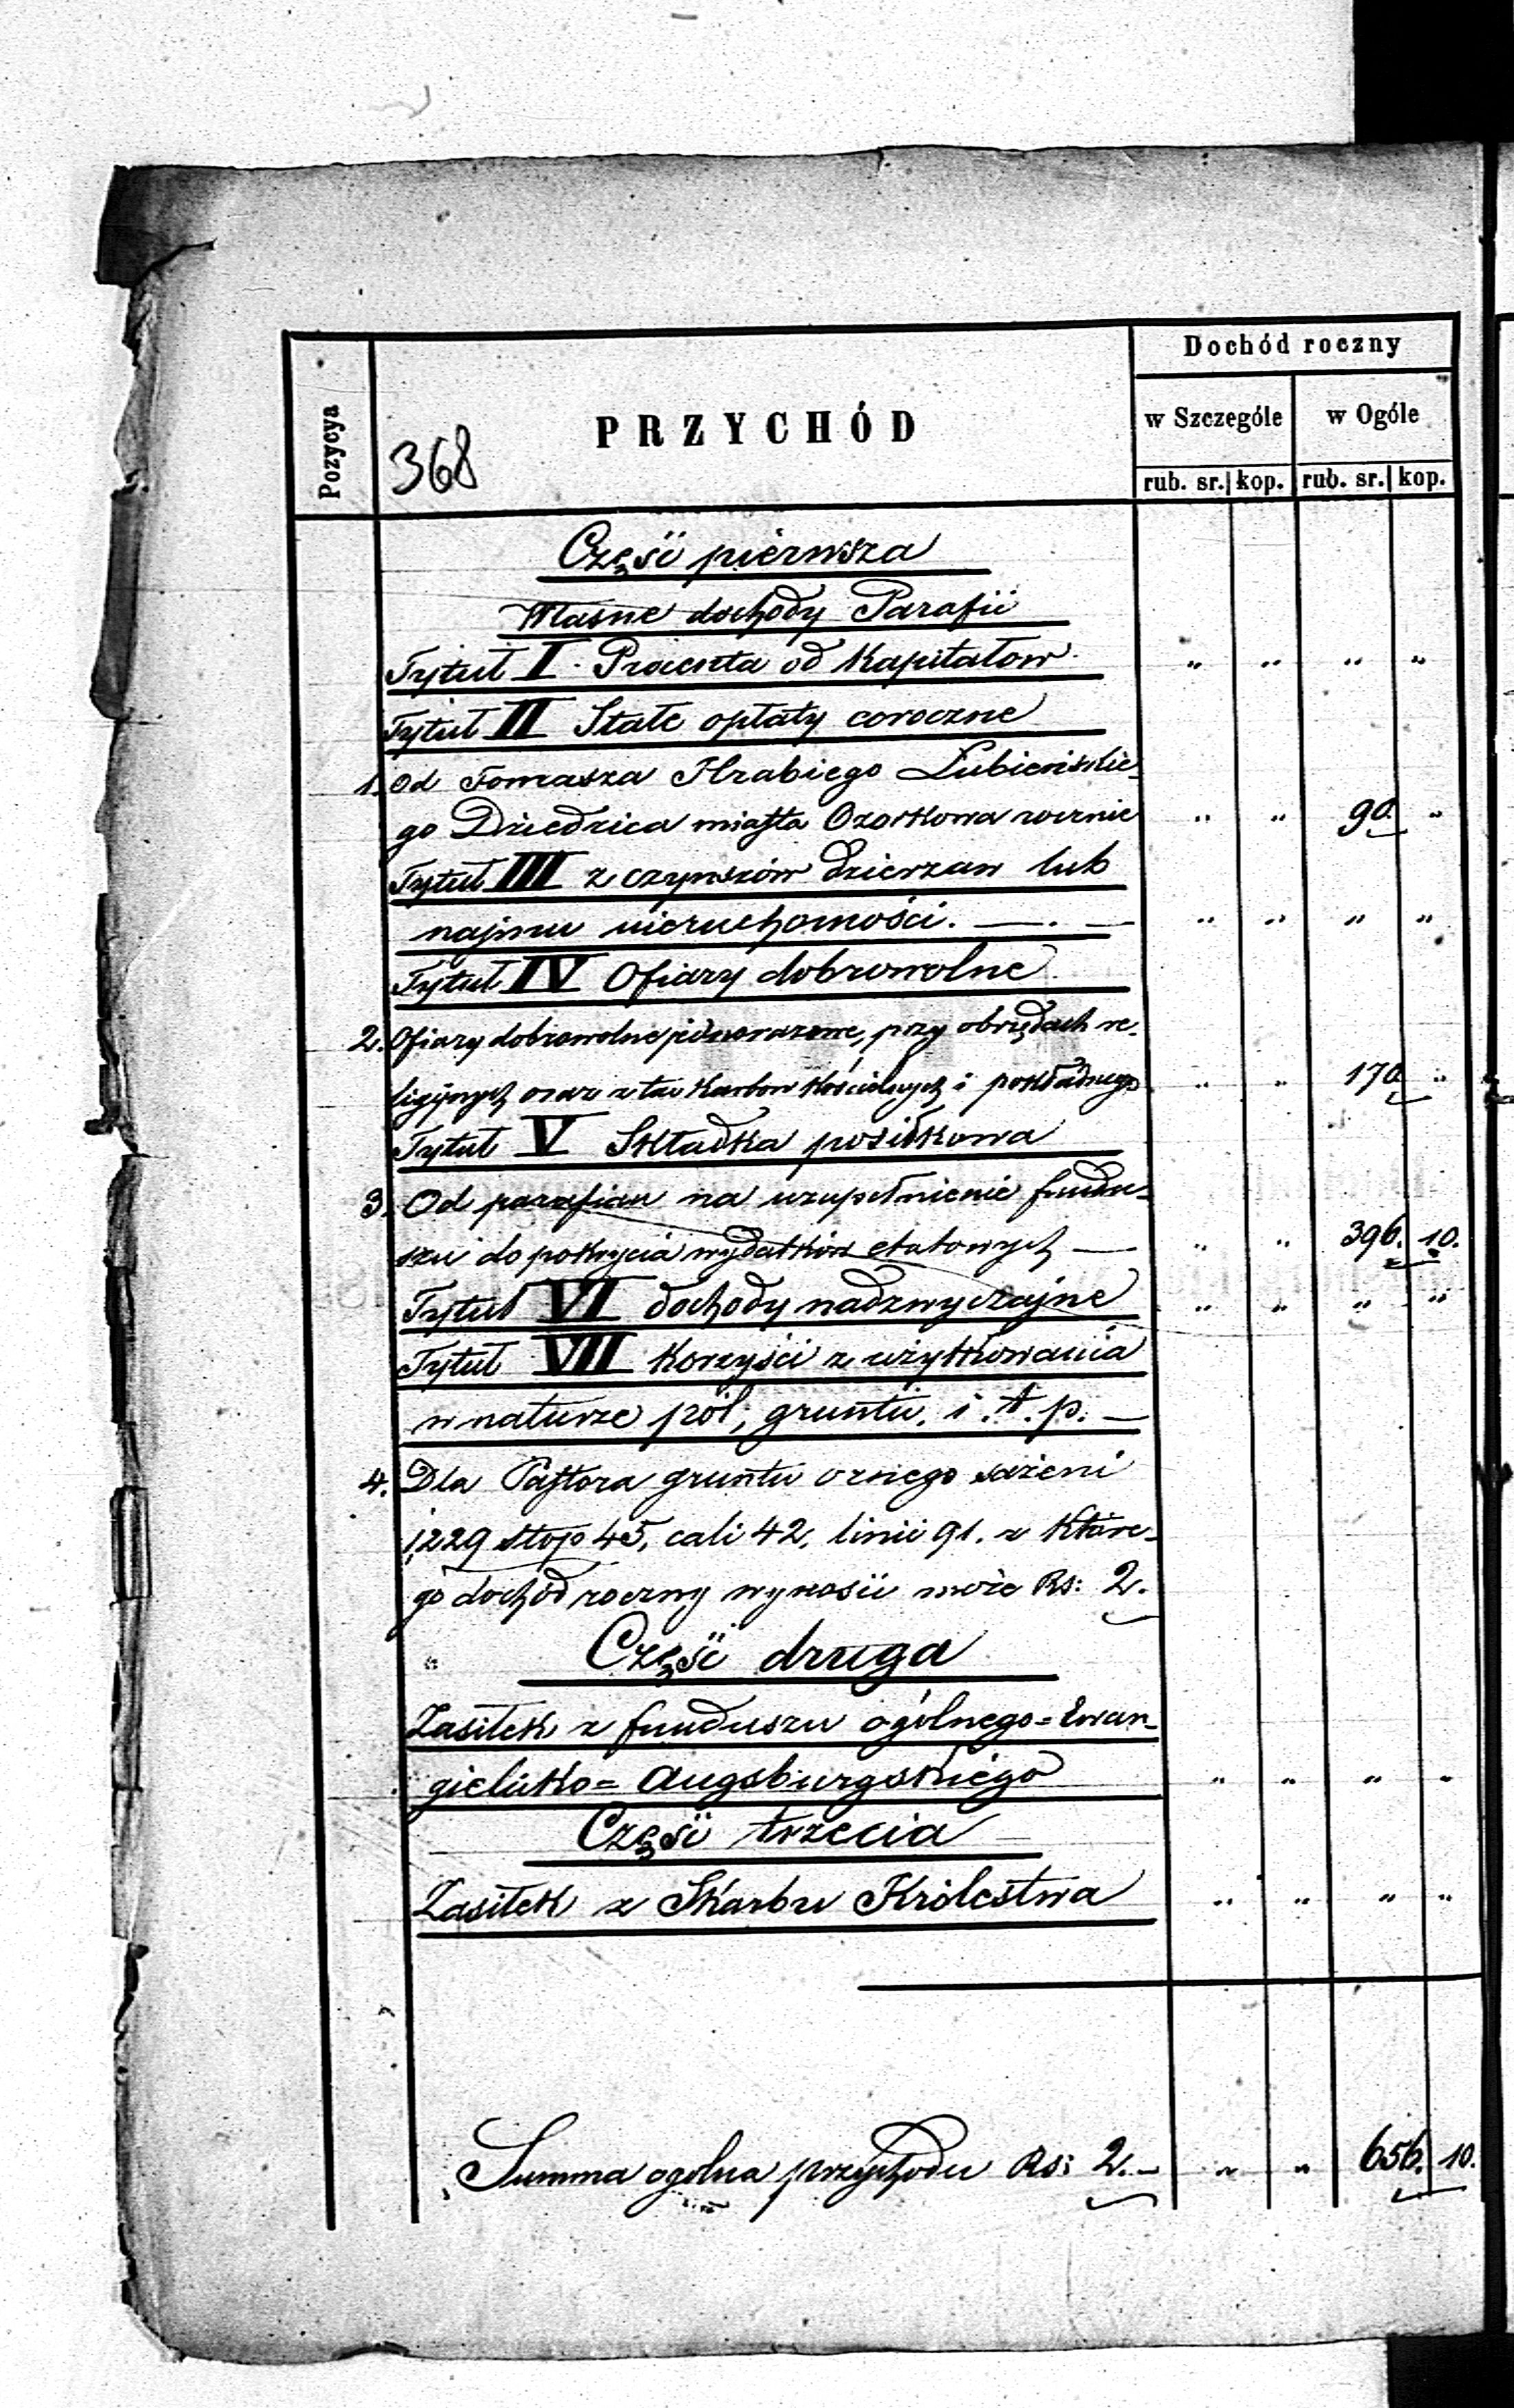 Dochód roczny
Pozycya
PRZYCHÓD
w Szczególe w Ogóle
368
rub. sr. kop. rub. sr. kop.
Część pierwsza
Własne dochody Parafii
Tytuł I. Procenta od Kapitałow „ „ „ „
Tytuł II Stałe opłaty coroczne
1. Od Tomasza Hrabiego Lubieńskie-
go Dziedzica miasta Ozorkowa rocznie „ „ 90. „
Tytuł III z czynszów dzierzaw lub
najmu nieruchomości. —. — „ „ „ „
Tytuł IV Ofiary dobrowolne
2. Ofiary dobrowolne jednorazowe, przy obrzędach re-
ligijnych oraz z Karbon Kościelnych i pokładnego „ „ 170 „
Tytuł V Składka posiłkowa
3. Od parafian na uzupełnienie fundu-
szu do pokrycia wydatków etatowych — „ „ 396. 10.
Tytuł VI dochody nadzwyczajne „ „ „ „
Tytuł VII Korzyści z użytkowania
w naturze pól, gruntu, i. t. p. —
4. Dla Pastora gruntu ornego sażeni
1,229 stop 45, cali 42, linii 91. z które-
go dochód roczny wynosić może Rs: 2.
Część druga
Zasiłek z funduszu ogólnego = Ewan-
gielicko = Augsburgskiego „ „ „ „
Część trzecia
Zasiłek z Skarbu Królestwa „ „ „ „
Summa ogolna przychodu Rs: 2. — „ „ 656. 10.